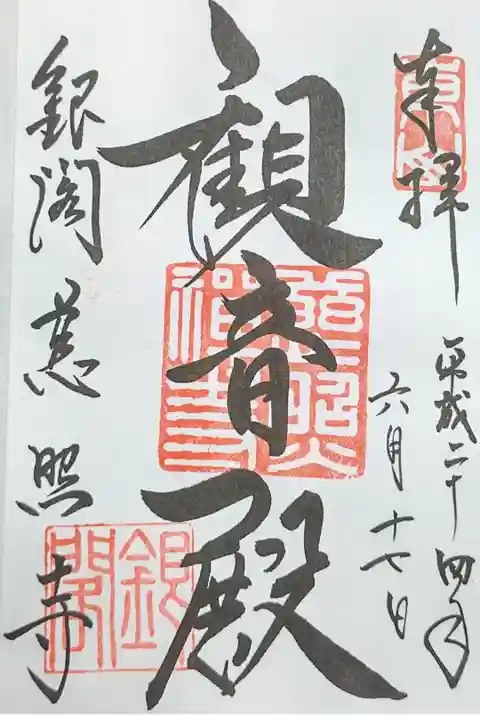 奉拝
平成二十四年
六月十七日
観音殿
銀閣慈照寺
慈照
禅寺
銀
閣